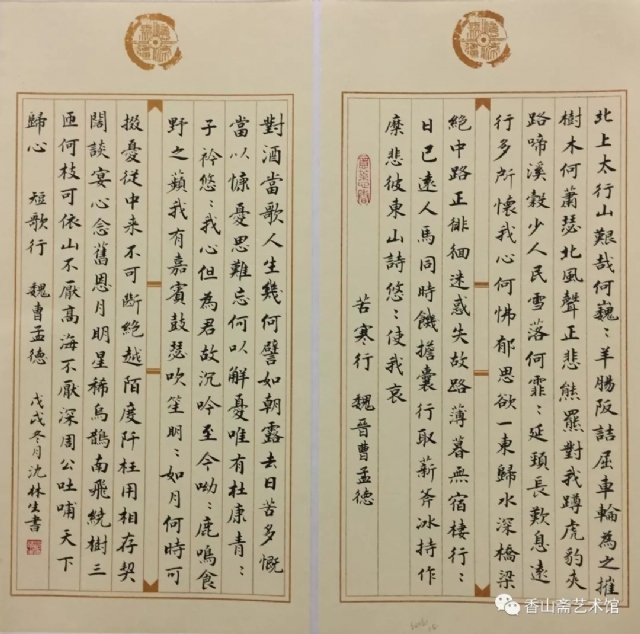 北上太行山艱哉何巍〻羊腸阪詰屈車輪為之摧
樹木何蕭瑟北風聲正悲熊羆對我蹲虎豹夾
路啼溪穀少人民雪落何霏〻延頸長歎息遠
行多所懷我心何怫郁思欲一東歸水深橋梁
絕中路正徘徊迷惑失故路薄暮無宿棲行〻
日已遠人馬同時饑擔囊行取薪斧冰持作
糜悲彼東山詩悠〻使我哀
苦寒行 魏晉曹孟德
對酒當歌人生幾何譬如朝露去日苦多慨
當以慷憂思難忘何以解憂唯有杜康青〻
子衿悠〻我心但為君故沉吟至今呦〻鹿鳴食
野之蘋我有嘉賓鼓瑟吹笙明〻如月何時可
掇憂從中来不可斷絕越陌度阡枉用相存契
闊談宴心念舊恩月明星稀烏鵲南飛繞樹三
匝何枝可依山不厭高海不厭深周公吐哺天下
歸心 短歌行 魏曹孟德 戊戌冬月沈林生書
香山斋艺术馆